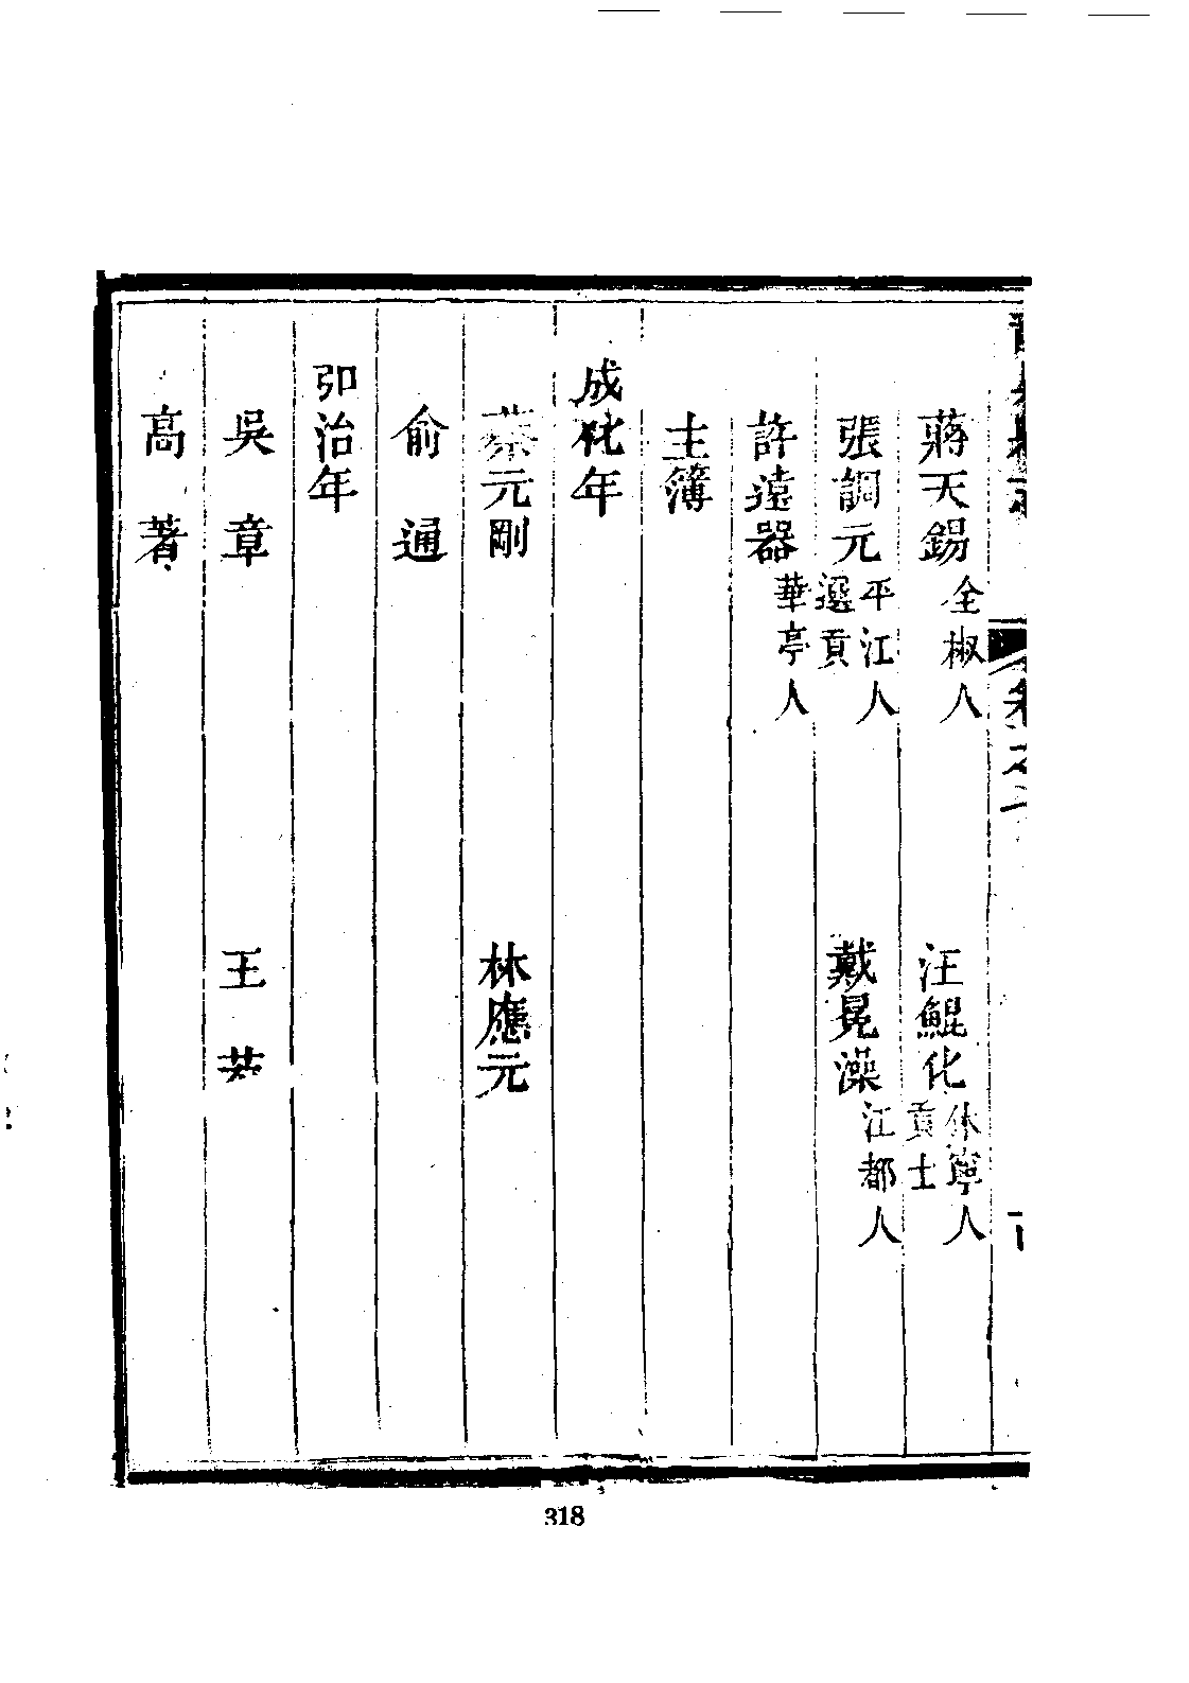 蔣天錫 全椒人 汪鯤化 休寧人貢士
張調元 平江人選貢 戴冕澡 江都人
許遠器 華亭人
主簿
成化年
蔡元剛 林應元
俞通
弘治年
吳章 王
高著
卷之二
318